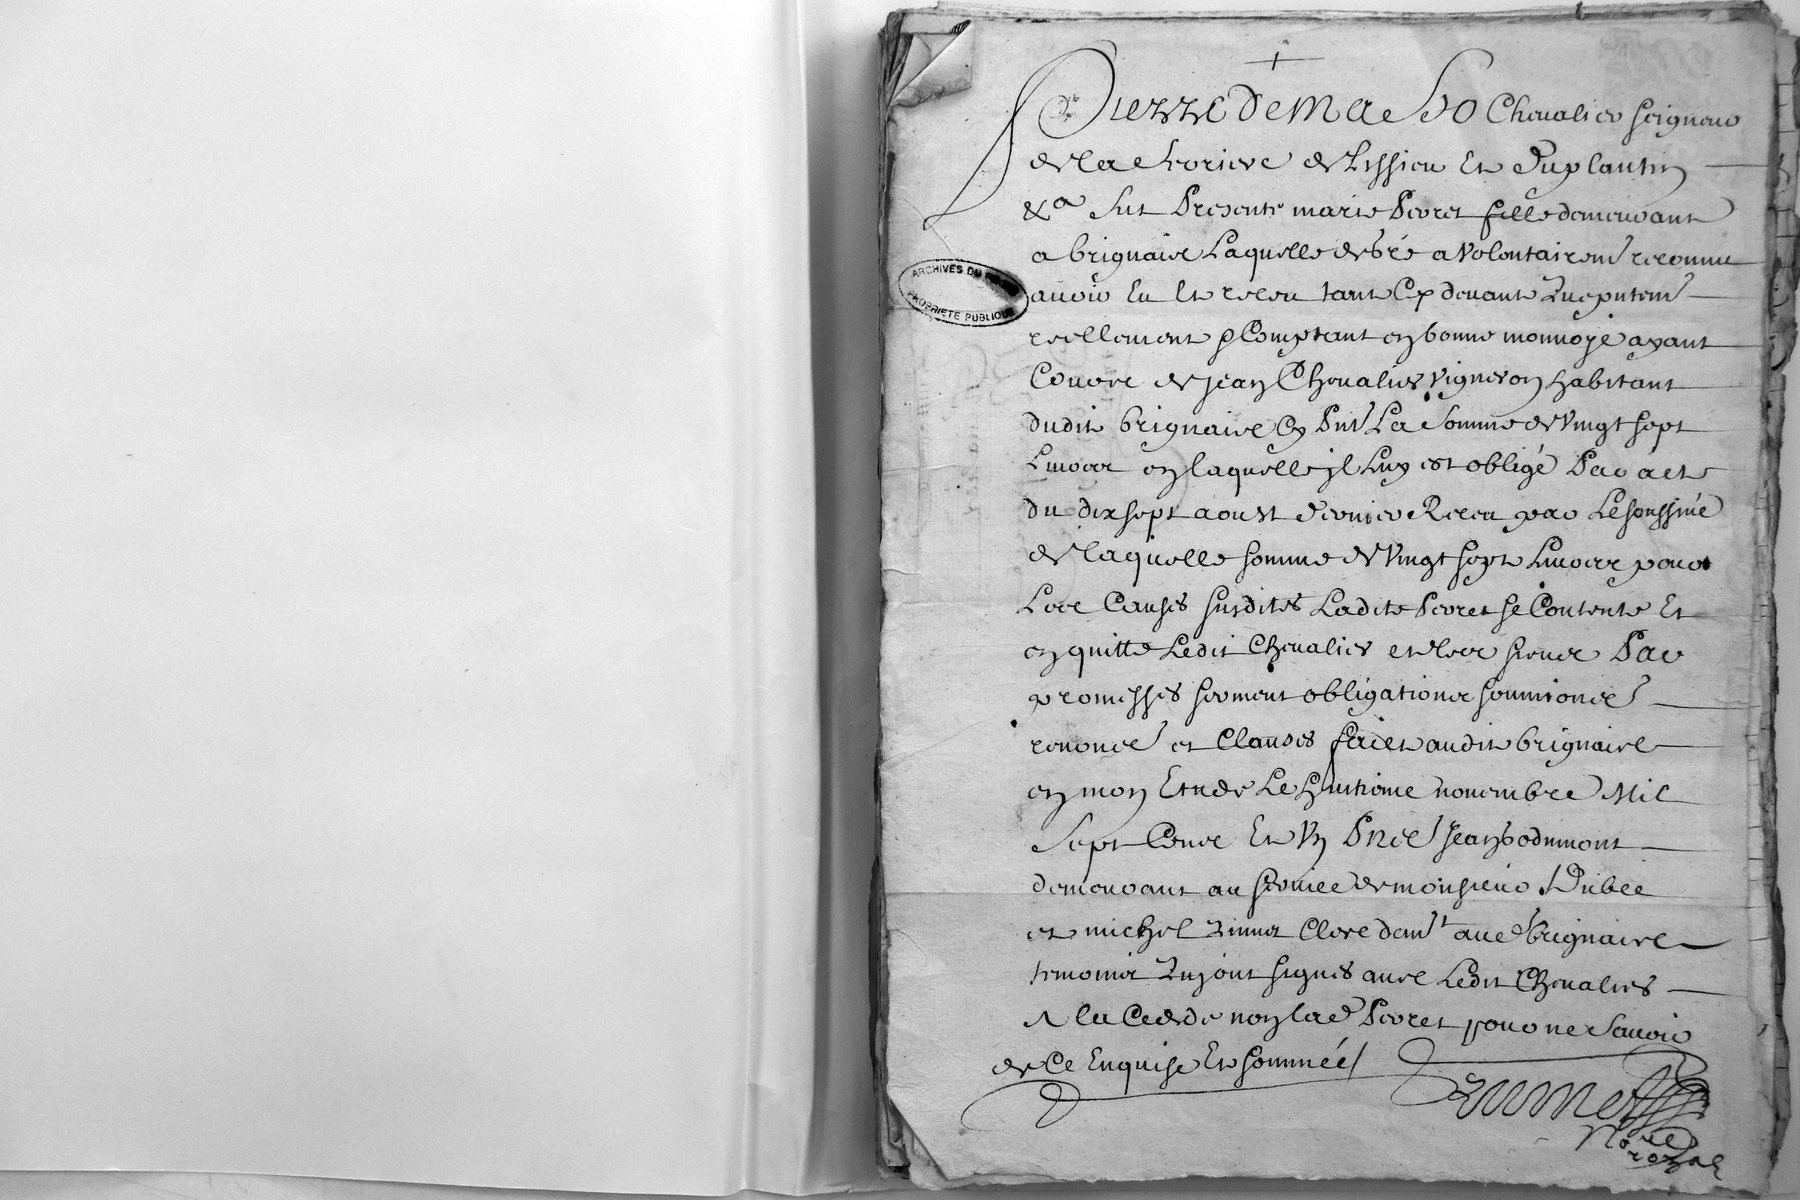 Pierre de Maso Chevalier seigneur
de la de Lissieu Et Duplantin
&a fut Presente marie Peoret fille demeurant
a brignaire Laquelle de gré a volontairemt reconnu
avoir Eu Et receu tant Cy devant que presentemt
reellement Comptant en bonne monnoye ayant
Cours de jean Chevalier vigneron habitant
dudit brignaire Cy Pnt La somme de vingt sept
Livres en laquelle jl Luy est obligé Par acte
du dix sept aoust dernier Receu par Le soussiné
de laquelle somme de vingt sept Livres pour
Les Causes susdites Ladite Peoret se Contente Et
en quitte Ledit Chevalier et les siens Par
promesses serment obligations soumions
renonce et Clauses faict audit brignaire
en mon Etude Le huitieme novembre Mil
Sept Cens Et Vn Pnce jean odumont
demeurant au service de monsieur Dubee
et michel Clerc demt aud brignaire
temoins quj ont signes avec Ledit Chevalier
A la Cede de non lad Peoret pour ne Savoir
de Ce Enquise Et sommée
Nore
royal
ARCHIVES DU RHÔNE
PROPRIETE PUBLIQUE